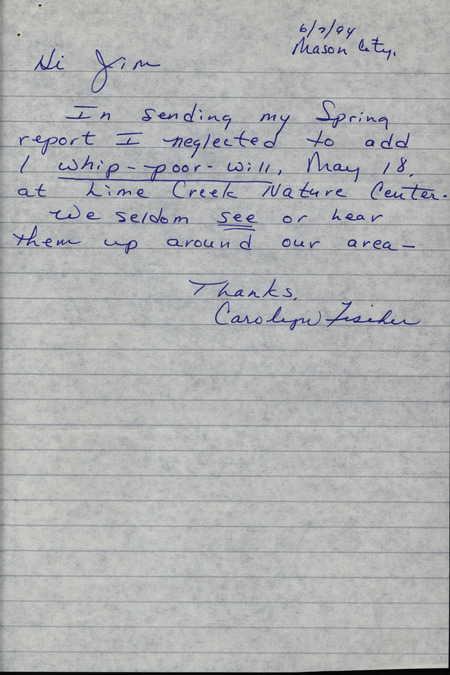 6/7/94
Mason City.
Hi Jim
In sending my Spring
report I neglected to add
1 whip-poor-will, May 18,
at Lime Creek Nature Center.
We seldom see or hear
them up around our area—
Thanks.
Carolyn Fischer